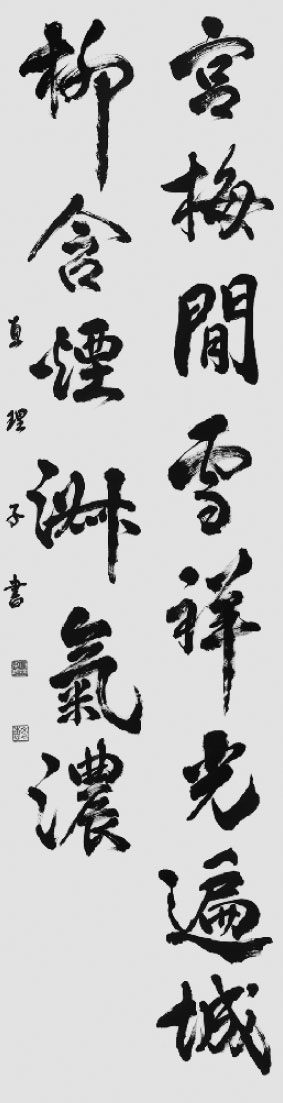 宮梅閒雪祥光遍城
柳含煙淑氣濃
真理子書